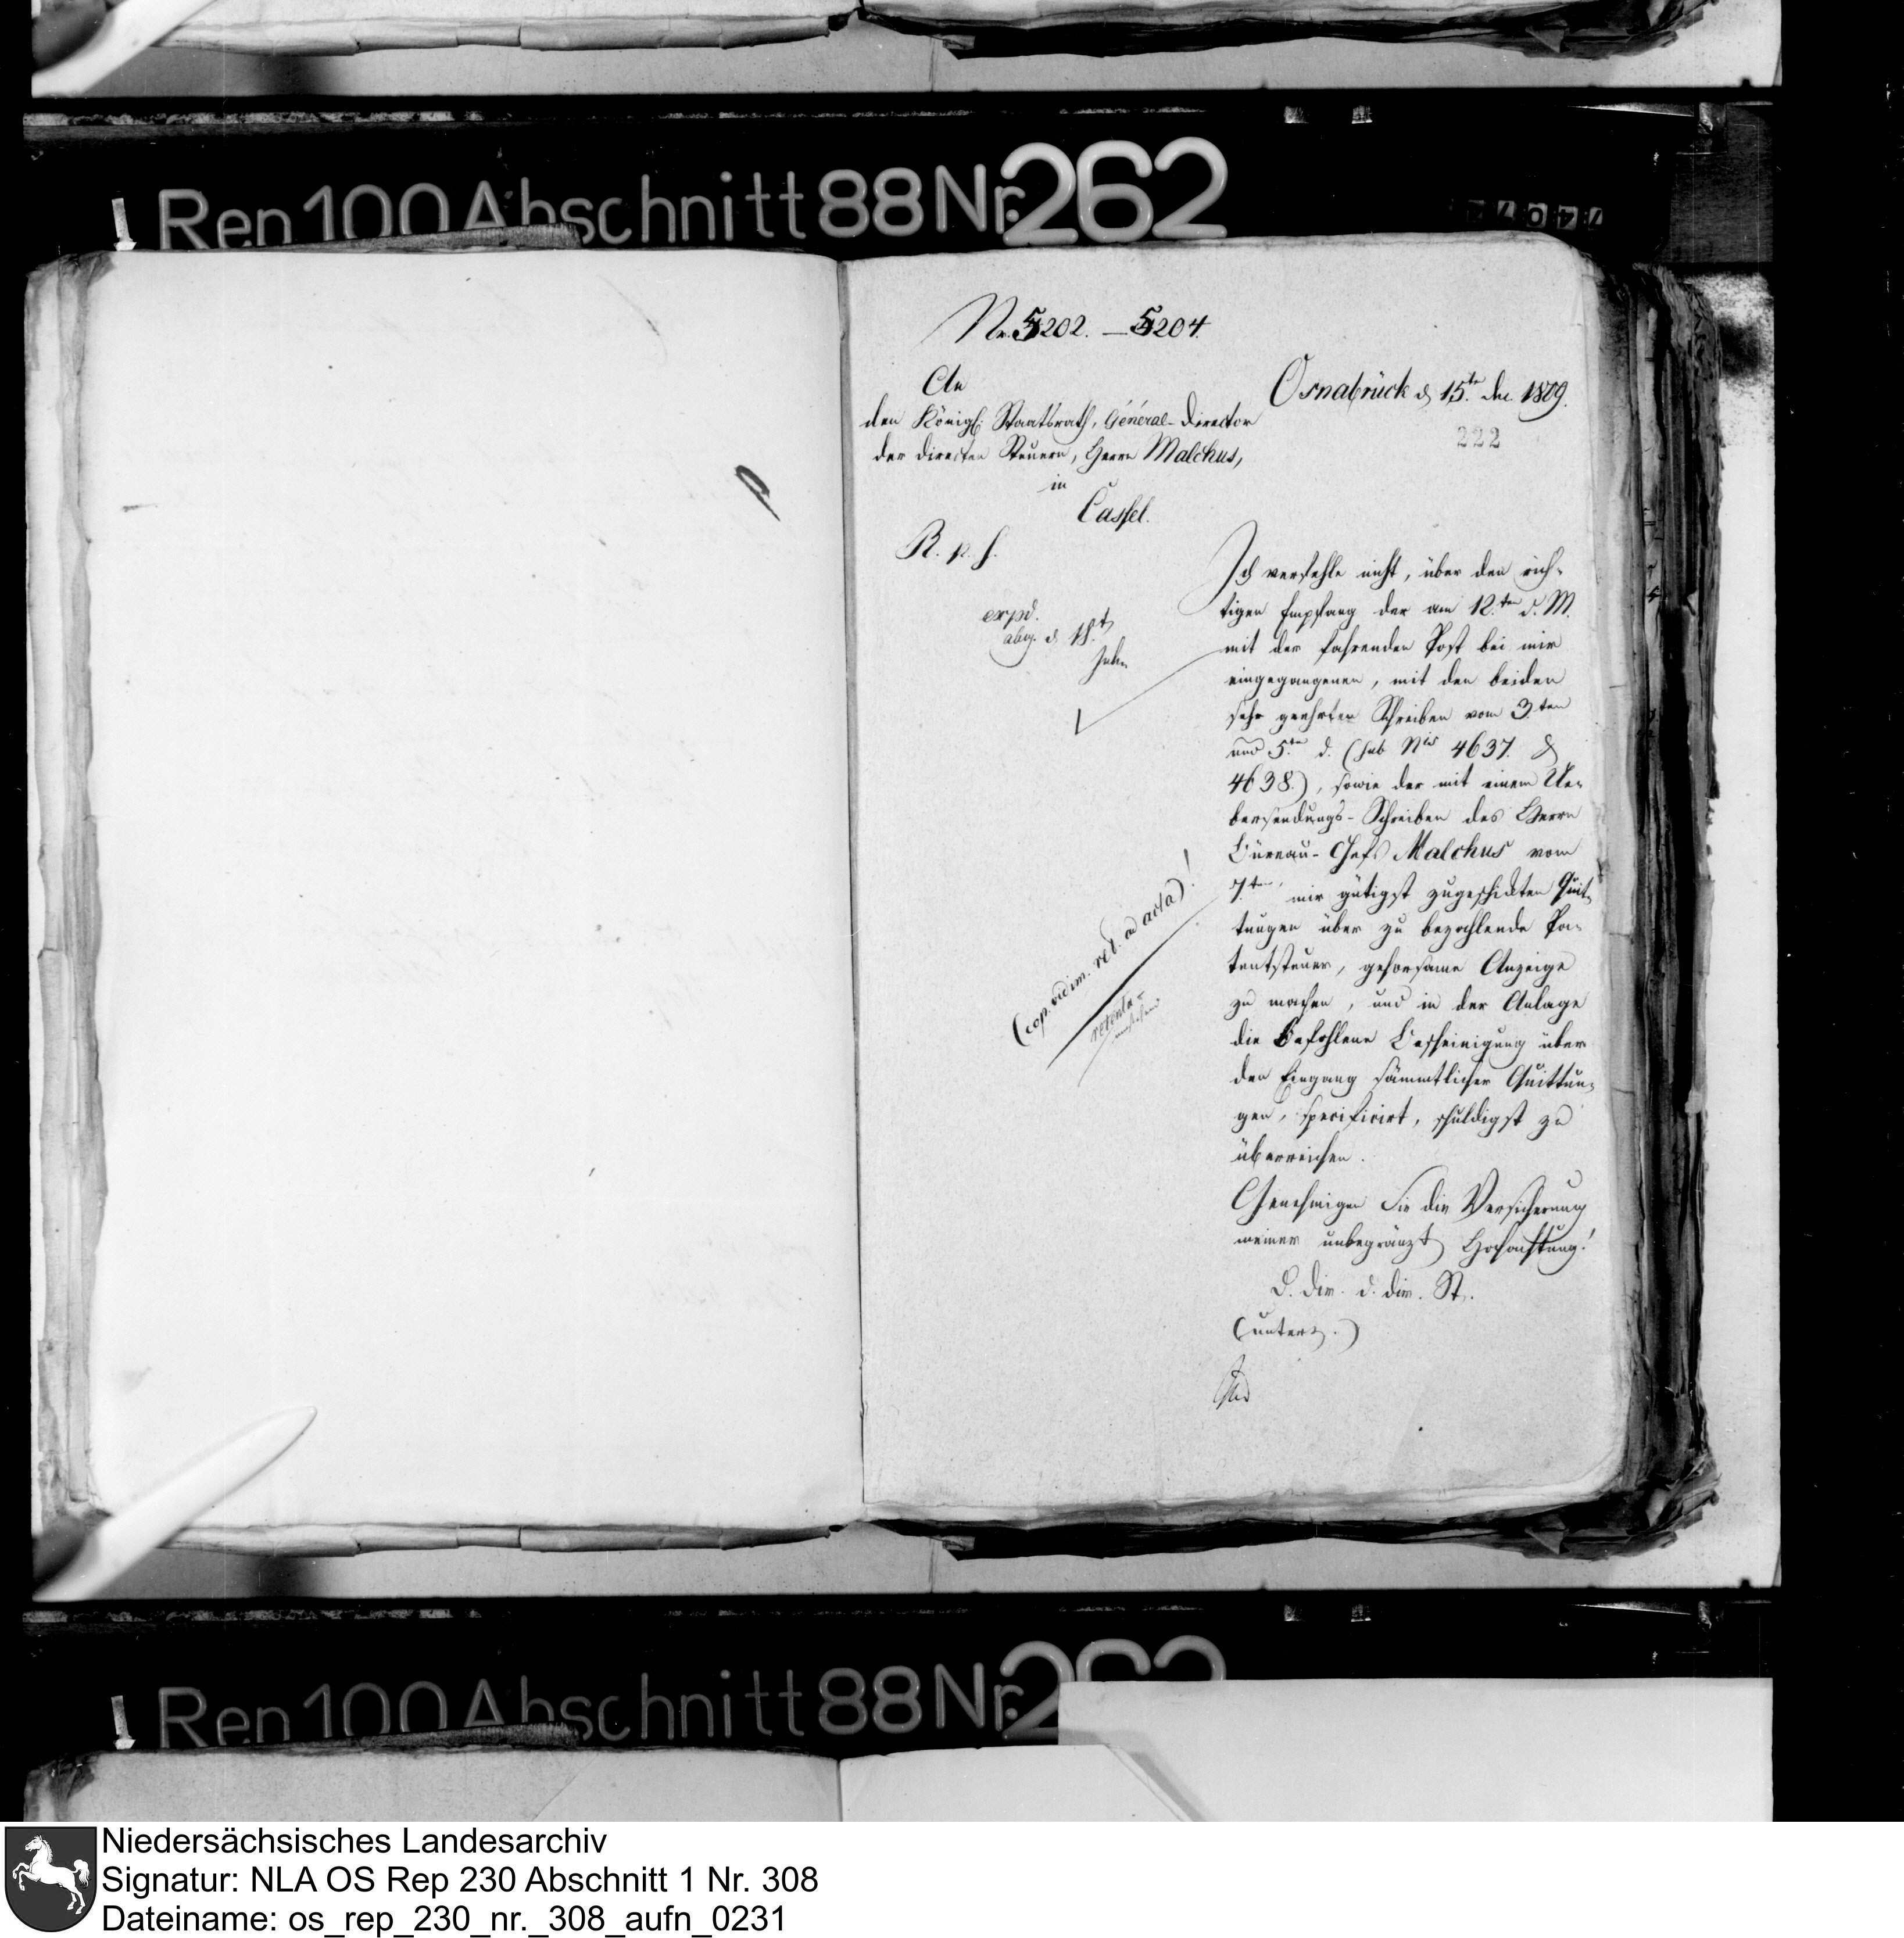 Rep 100 Abschnitt 88 Nr. 262
Nr. 5202. – 5204.
An
den Königl. Staatsrath, Général-Director
der directen Steuern, Herrn Malchus,
in
Cassel.
Osnabrück d 15.ten Dec. 1809.
222
R. p. s.
expd.
abg. d 18.t
Ich verfehle nicht, über den rich-
tigen Empfang der am 12.ten d. M.
mit der fahrenden Post bei mir
eingegangenen, mit den beiden
sehr geehrten Schreiben vom 3.ten
und 5.ten d. (sub Nis 4637. &
4638.), sowie der mit einem Ue-
bersendungs-Schreiben des Herrn
Büreau-Chefs Malchus vom
7.ten mir gütigst zugeschickten Quit-
tungen über zu bezahlende Pa-
tentsteuer, gehorsame Anzeige
zu machen, und in der Anlage
die befohlene Bescheinigung über
den Eingang sämmtlicher Quittun-
gen, specificirt, schuldigst zu
überreichen.
Genehmigen Sie die Versicherung
meiner unbegränzt Hochachtung!
D. Dir. d. dir. St.
(unterz.)
(cop. vidim. ret. ad acta)!
Rep 100 Abschnitt 88 Nr. 262
Niedersächsisches Landesarchiv
Signatur: NLA OS Rep 230 Abschnitt 1 Nr. 308
Dateiname: os_rep_230_nr._308_aufn_0231